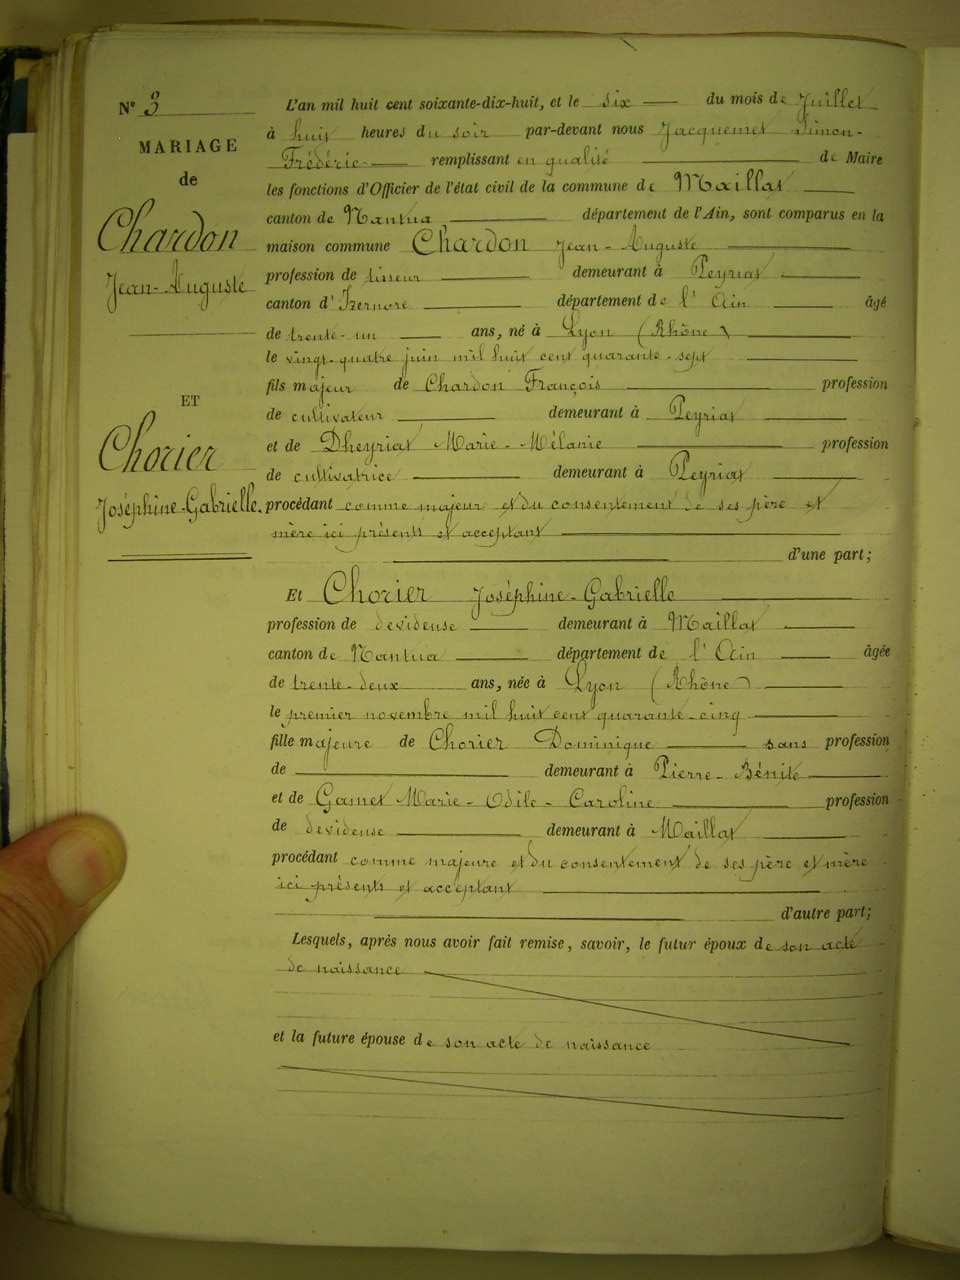 N° 3
MARIAGE
de
Chardon
Jean-Auguste
ET
Chorier
Joséphine-Gabrielle.
L'an mil huit cent soixante-dix-huit, et le six du mois de Juillet
à huit heures du soir par-devant nous Jacquemet Simon-
Frédéric remplissant en qualité de Maire
les fonctions d'Officier de l'état civil de la commune de Maillat
canton de Nantua département de l'Ain, sont comparus en la
maison commune Chardon Jean-Auguste
profession de tisseur demeurant à Peyriat
canton d'Izernore département de l'Ain âgé
de trente-un ans, né à Lyon (Rhône)
le vingt-quatre juin mil huit cent quarante-sept
fils majeur de Chardon François profession
de cultivateur demeurant à Peyriat
et de Dheyriat Marie-Mélanie profession
de cultivatrice demeurant à Peyriat
procédant comme majeur et du consentement de ses père et
mère ici présents et acceptant
d'une part;
Et Chorier Joséphine-Gabrielle
profession de devideuse demeurant à Maillat
canton de Nantua département de l'Ain âgée
de trente-deux ans, née à Lyon (Rhône)
le premier novembre mil huit cent quarante-cinq
fille majeure de Chorier Dominique sans profession
de demeurant à Pierre-Bénite
et de Gamet Marie-Odile-Caroline profession
de devideuse demeurant à Maillat
procédant comme majeure et du consentement de ses père et mère
ici présents et acceptant
d'autre part;
Lesquels, après nous avoir fait remise, savoir, le futur époux de son acte
de naissance
et la future épouse de son acte de naissance